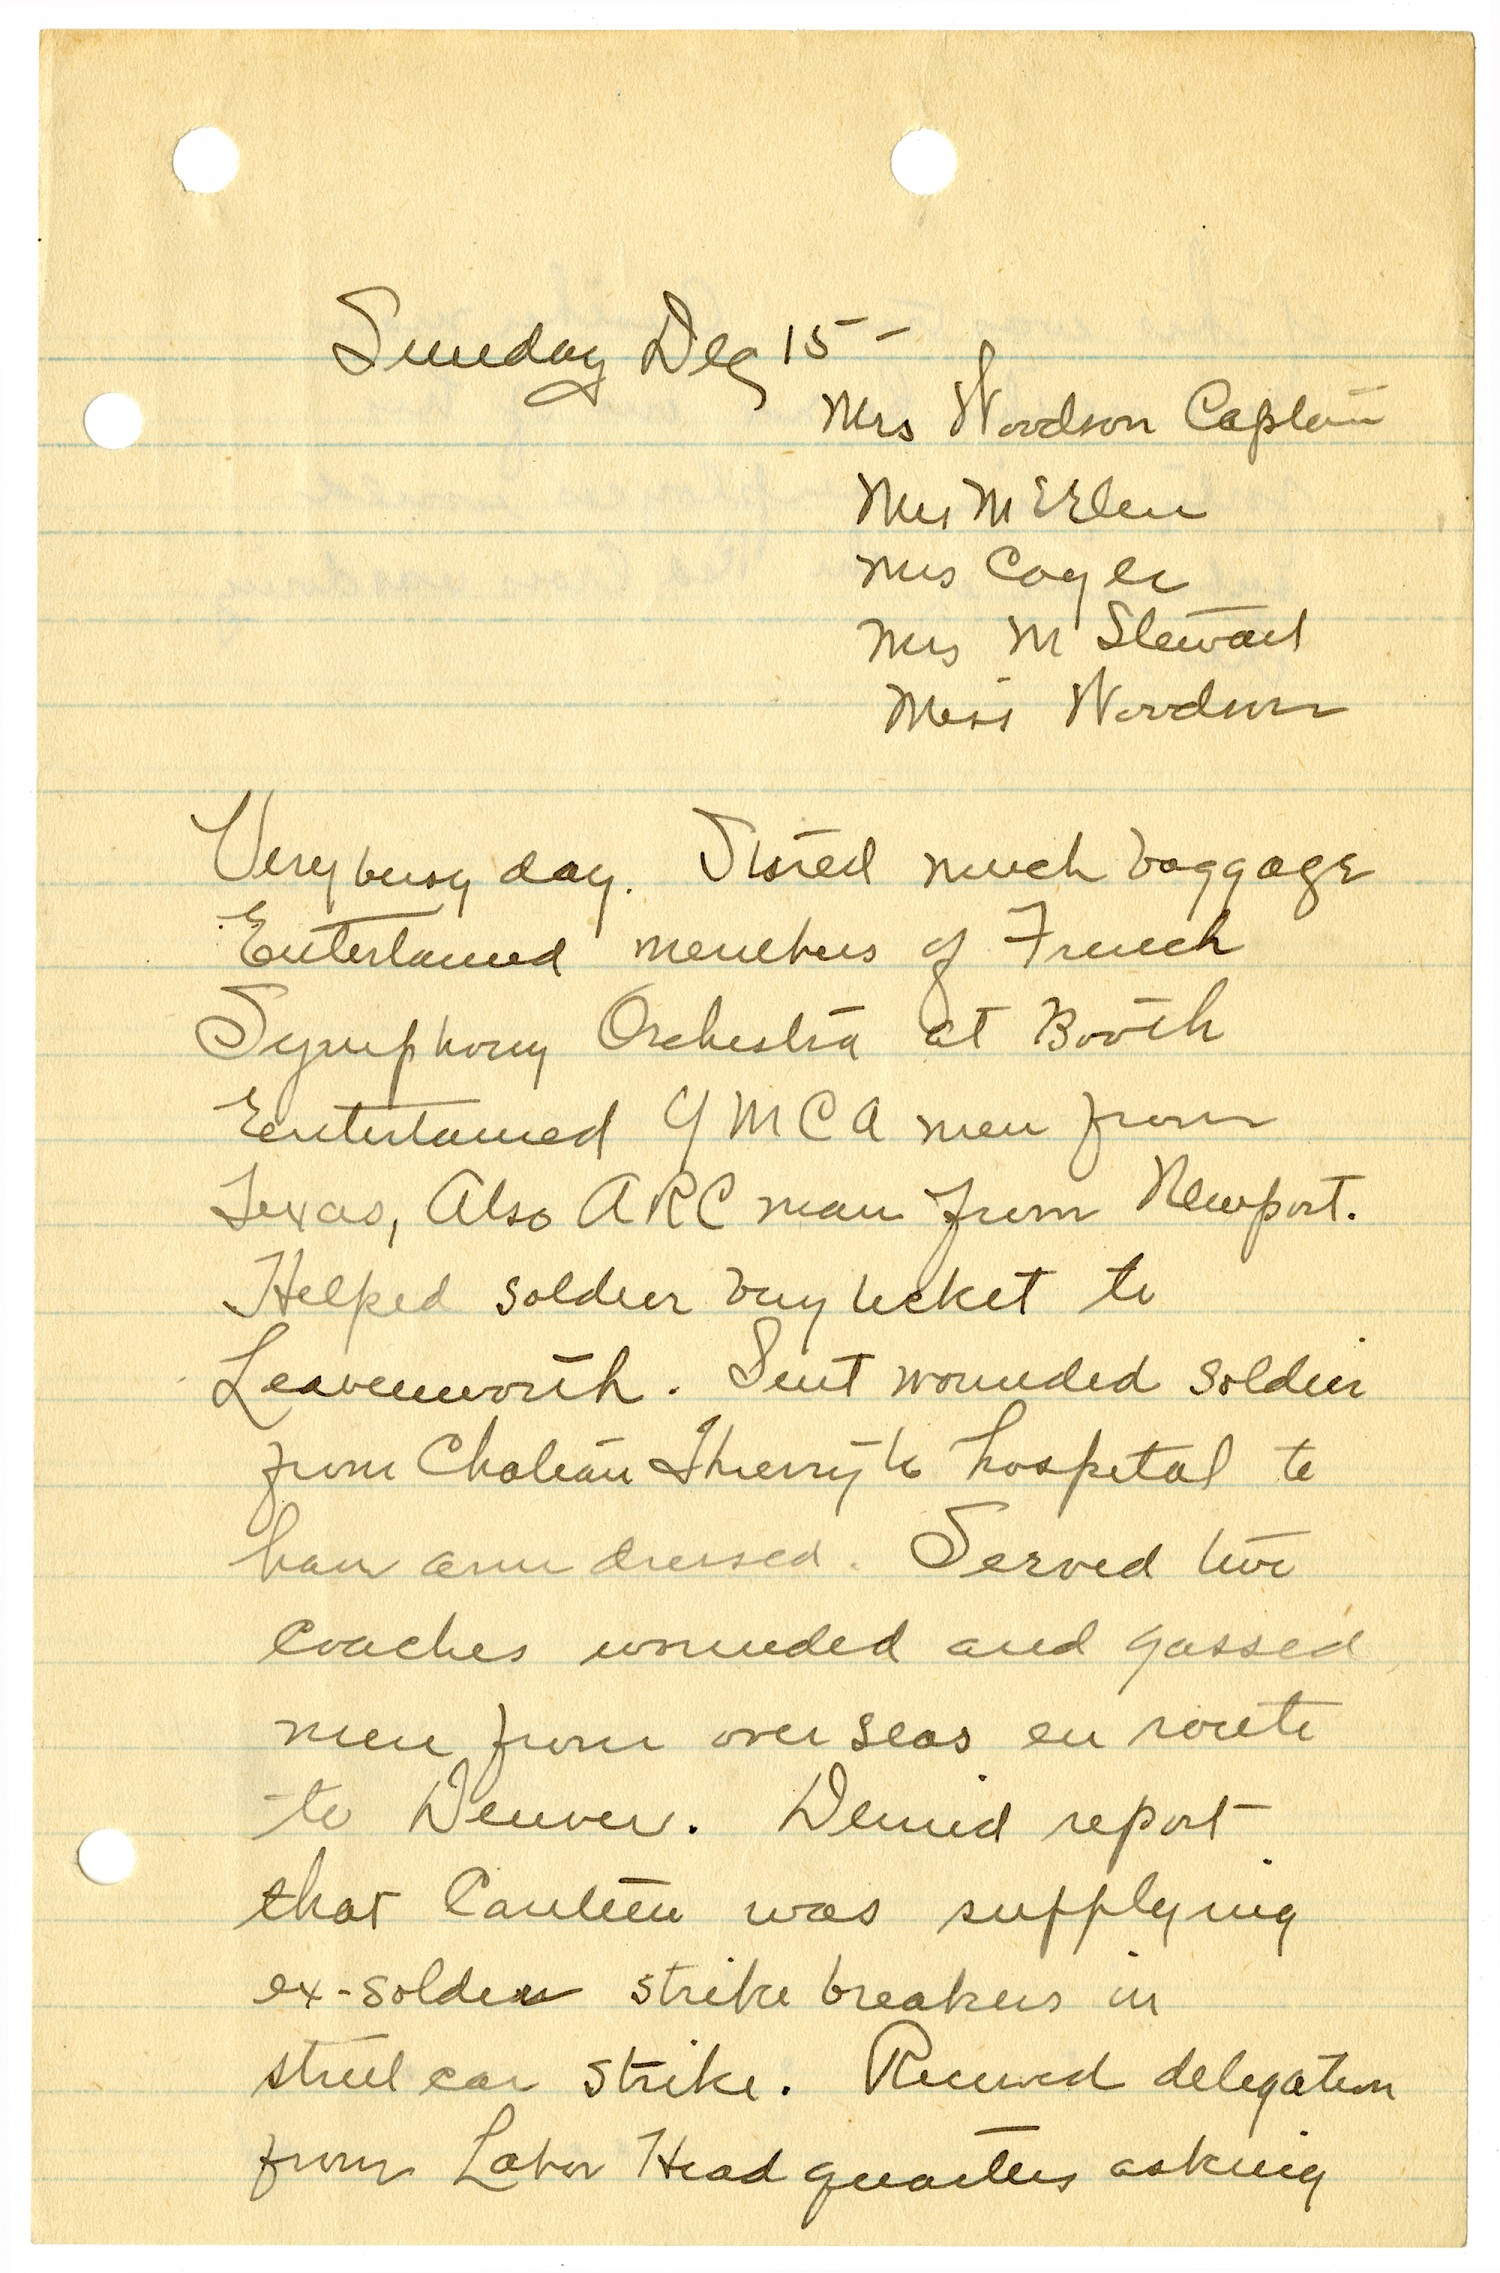 Sunday Dec 15 -
Mrs Woodson Captain
Mrs
Mrs Coyle
Mrs M Stewart
Miss Woodson
Very busy day. Stored much baggage
Entertained members of French
Symphony Orchestra at Booth
Entertained YMCA men from
Texas, Also ARC man from Newport.
Helped soldier buy ticket to
Leavenworth. Sent wounded soldier
from Chateau Thierry to hospital to
have arm dressed. Served two
coaches wounded and gassed
men from over seas en route
to Denver. Denied report
that Canteen was supplying
ex-soldier strike breakers in
street car strike. Received delegation
from Labor Head quarters asking